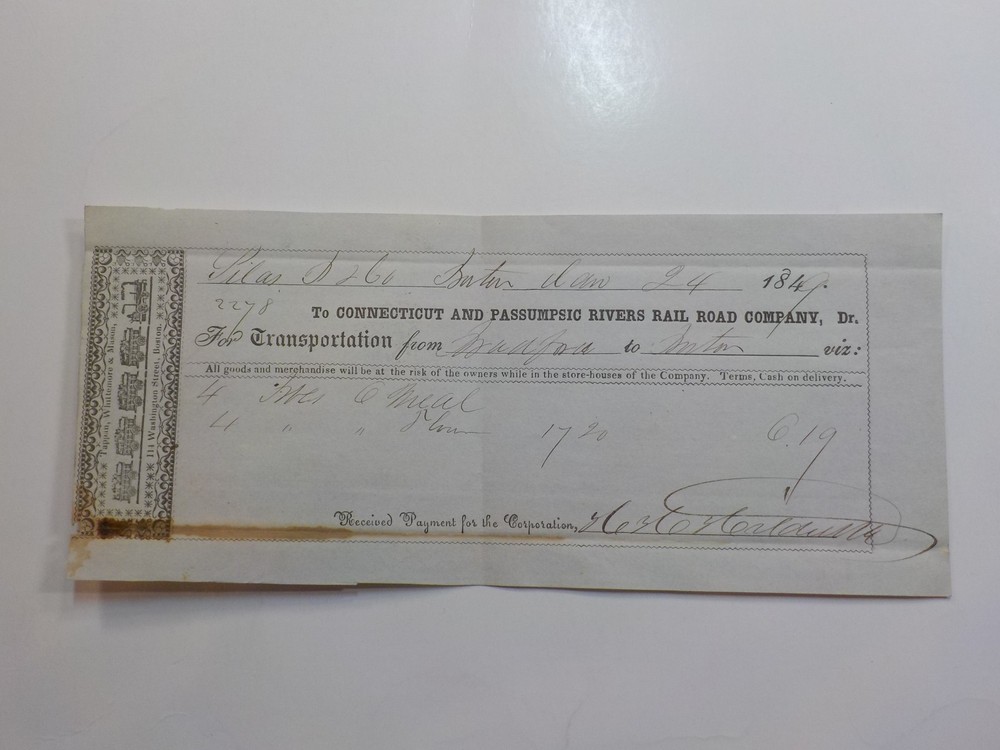 Silas & Co Jan 24 1849.
2278
To CONNECTICUT AND PASSUMPSIC RIVERS RAIL ROAD COMPANY, Dr.
For Transportation from Bradford to viz:
All goods and merchandise will be at the risk of the owners while in the store-houses of the Company. Terms, Cash on delivery.
4 C Meal
4 " " Flour 1720 6.19
Received Payment for the Corporation,
Tappan, Whittemore & Mason,
114 Washington Street, Boston.